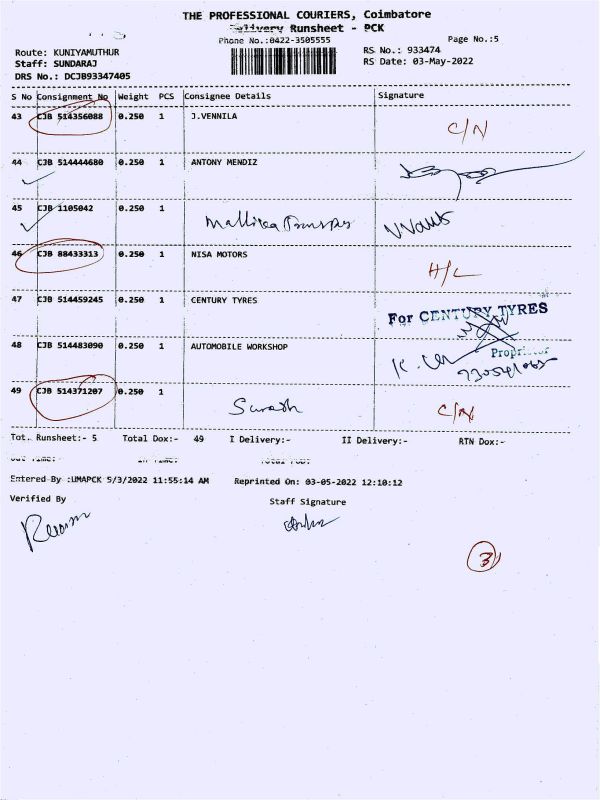 THE PROFESSIONAL COURIERS, Coimbatore
Delivery Runsheet - PCK
Phone No.:0422-3505555
Page No.:5
Route: KUNIYAMUTHUR
RS No.: 933474
Staff: SUNDARAJ
RS Date: 03-May-2022
DRS No.: DCJB93347405
S No Consignment No Weight PCS Consignee Details Signature
43 CJB 514356088 0.250 1 J.VENNILA C/N
44 CJB 514444680 0.250 1 ANTONY MENDIZ
45 CJB 1105042 0.250 1 Mallika
46 CJB 88433313 0.250 1 NISA MOTORS H/L
47 CJB 514459245 0.250 1 CENTURY TYRES For CENTURY TYRES
Proprietor
48 CJB 514483090 0.250 1 AUTOMOBILE WORKSHOP
49 CJB 514371207 0.250 1 Suresh C/N
Tot. Runsheet:- 5 Total Dox:- 49 I Delivery:- II Delivery:- RTN Dox:-
Out Time: In Time: Total POD:
Entered By :UMAPCK 5/3/2022 11:55:14 AM Reprinted On: 03-05-2022 12:10:12
Verified By Staff Signature
3